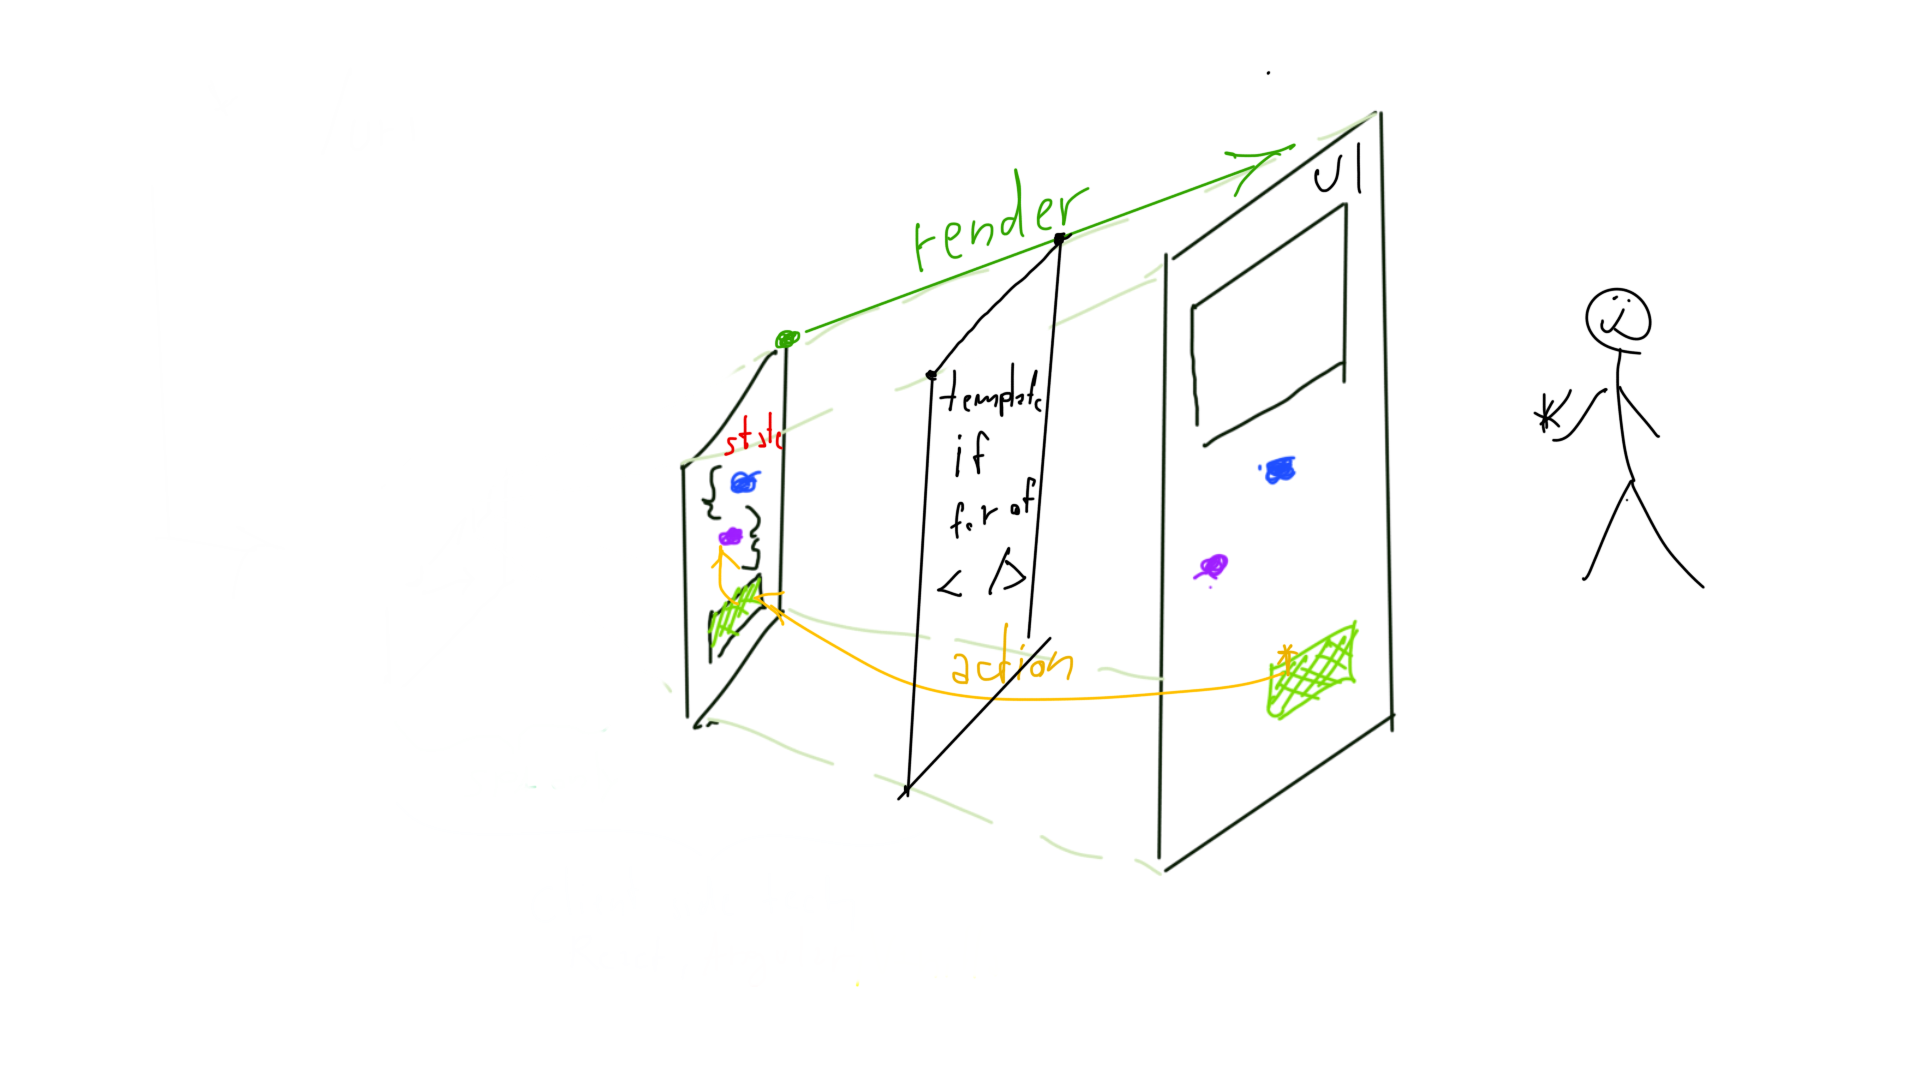 render
UI
state
{
}
template
if
for of
< />
action